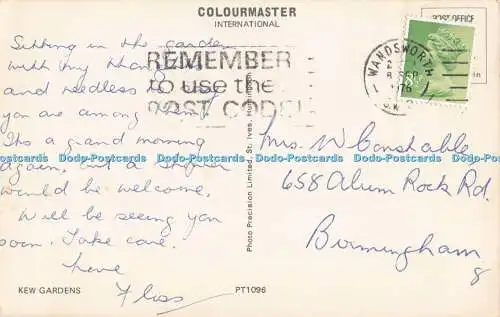 COLOURMASTER
INTERNATIONAL
POST OFFICE
Sitting in the garden
with my thoughts
and needless to say
you are among them!
Its a grand morning
again, but a shower
would be welcome.
Will be seeing you
soon. Take care.
Love
Floss
REMEMBER
to use the
POST CODE!
WANDSWORTH
Mrs. W Constable,
658 Alum Rock Rd.
Birmingham
8
Photo Precision Limited, St. Ives, Huntingdon
Dodo-Postcards Dodo-Postcards Dodo-Postcards Dodo-Postcards Dodo-Postcards
KEW GARDENS
PT1096